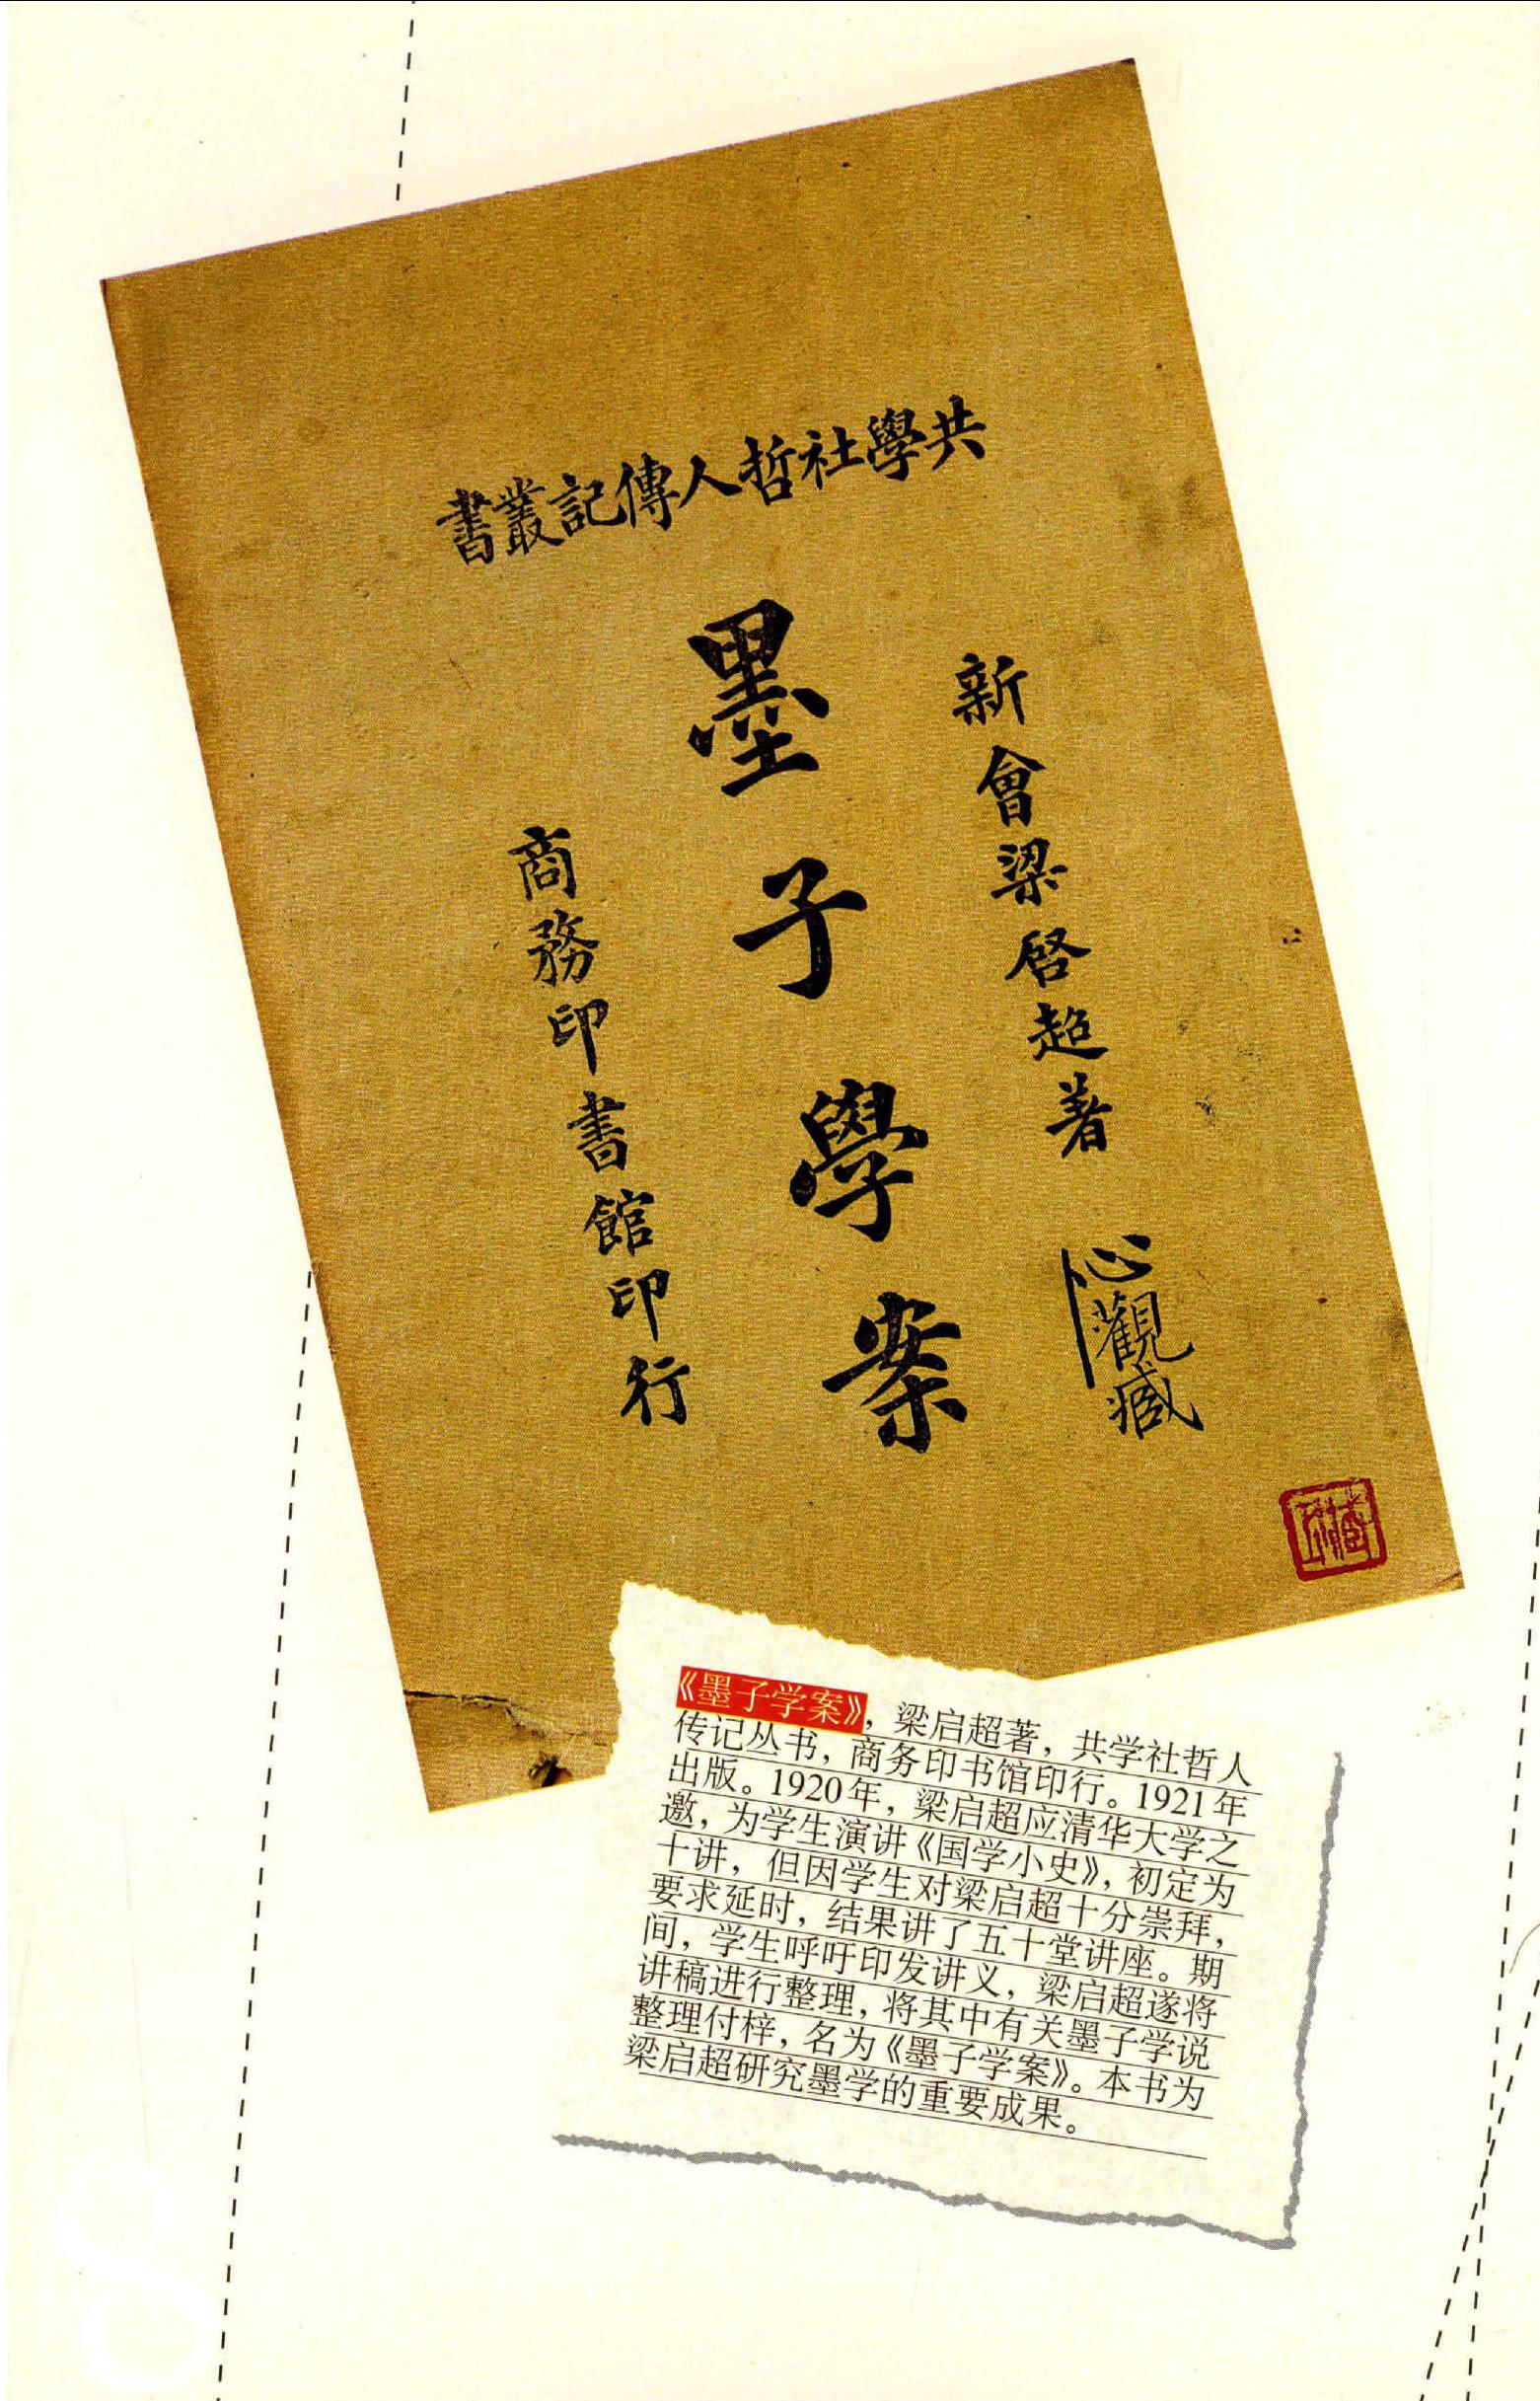 共學社哲人傳記叢書
新會梁啓超著
心觀臧
墨子學案
商務印書館印行
《墨子学案》，梁启超著，共学社哲人
传记丛书，商务印书馆印行。1921年
出版。1920年，梁启超应清华大学之
邀，为学生演讲《国学小史》，初定为
十讲，但因学生对梁启超十分崇拜，
要求延时，结果讲了五十堂讲座。期
间，学生呼吁印发讲义，梁启超遂将
讲稿进行整理，将其中有关墨子学说
整理付梓，名为《墨子学案》。本书为
梁启超研究墨学的重要成果。
8